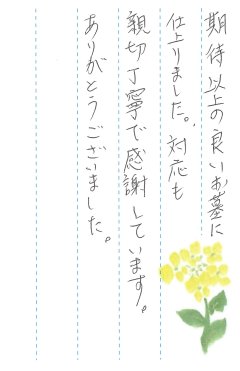 期待以上の良いお墓に
仕上りました。対応も
親切丁寧で感謝しています。
ありがとうございました。